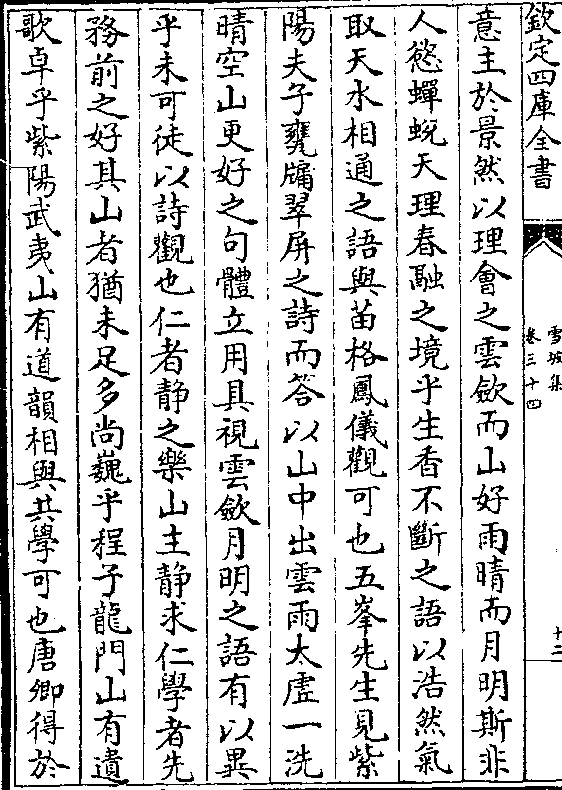 欽定四庫全書
雪坡集
卷三十四
十二
意主於景然以理會之雲歛而山好雨晴而月明斯非
人慾蟬蛻天理春融之境乎生香不斷之語以浩然氣
取天水相通之語與苗格鳳儀觀可也五峯先生見紫
陽夫子甕牖翠屏之詩而答以山中出雲雨太虛一洗
晴空山更好之句體立用具視雲歛月明之語有以異
乎未可徒以詩觀也仁者靜之樂山主靜求仁學者先
務前之好其山者猶未足多尚巍乎程子龍門山有遺
歌卓乎紫陽武夷山有道韻相與共學可也唐卿得於